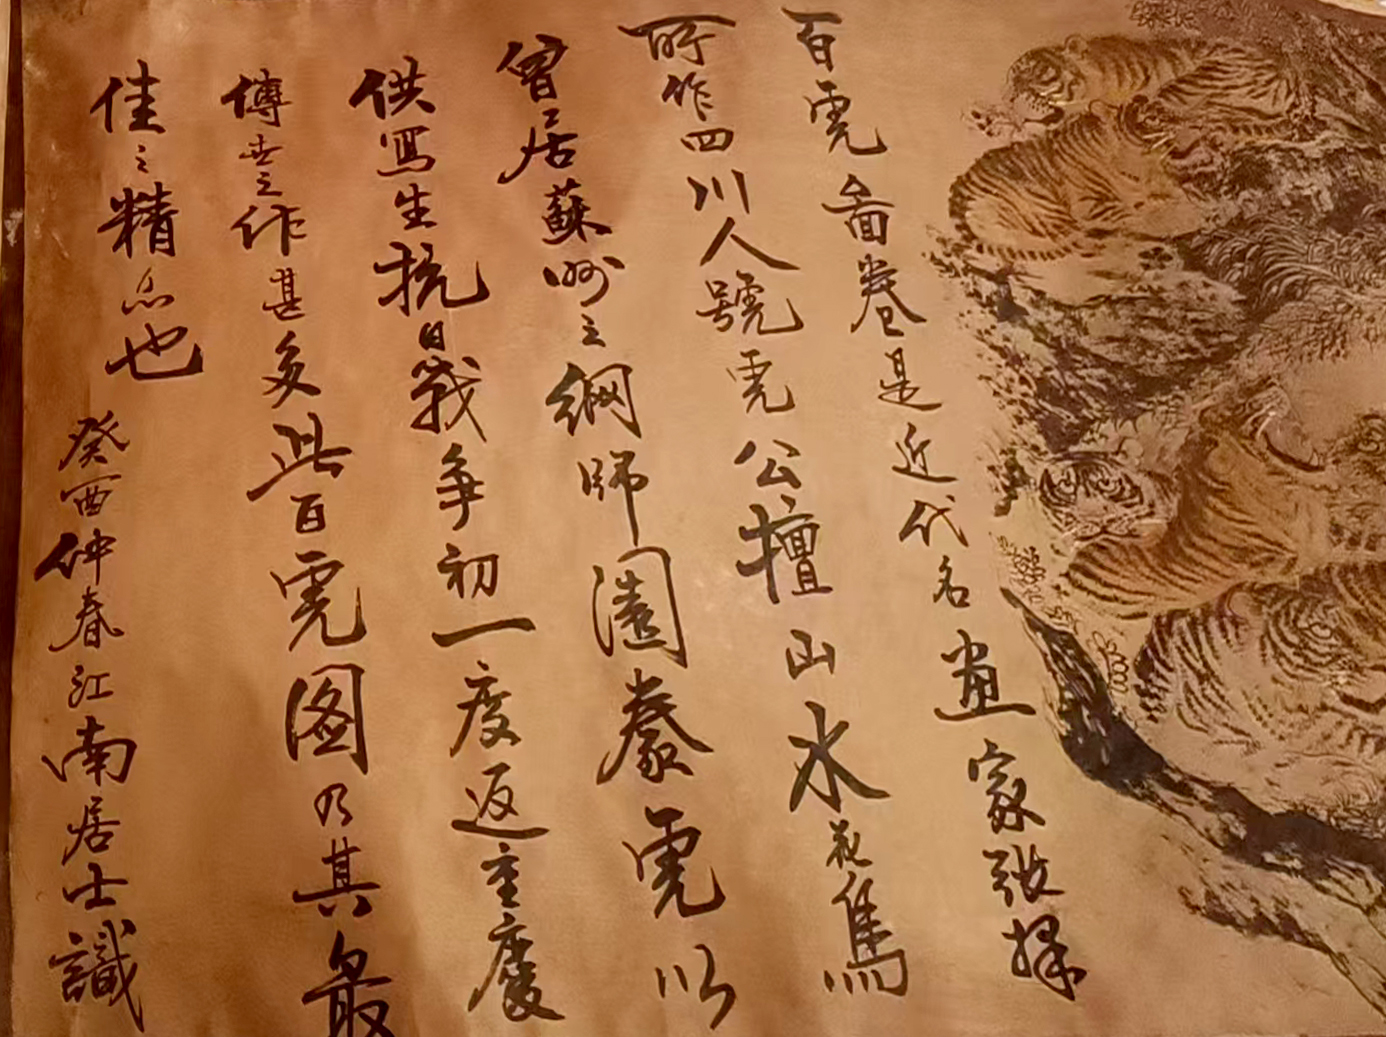 百虎啚卷是近代名畫家張擇
所作四川人號虎公擅山水花雋
曾居蘇州之網師園豢虎以
供寫生抗日戰争初一度返重慶
傳世之作甚多此百虎图乃其最
佳之精品也
癸酉仲春江南居士識